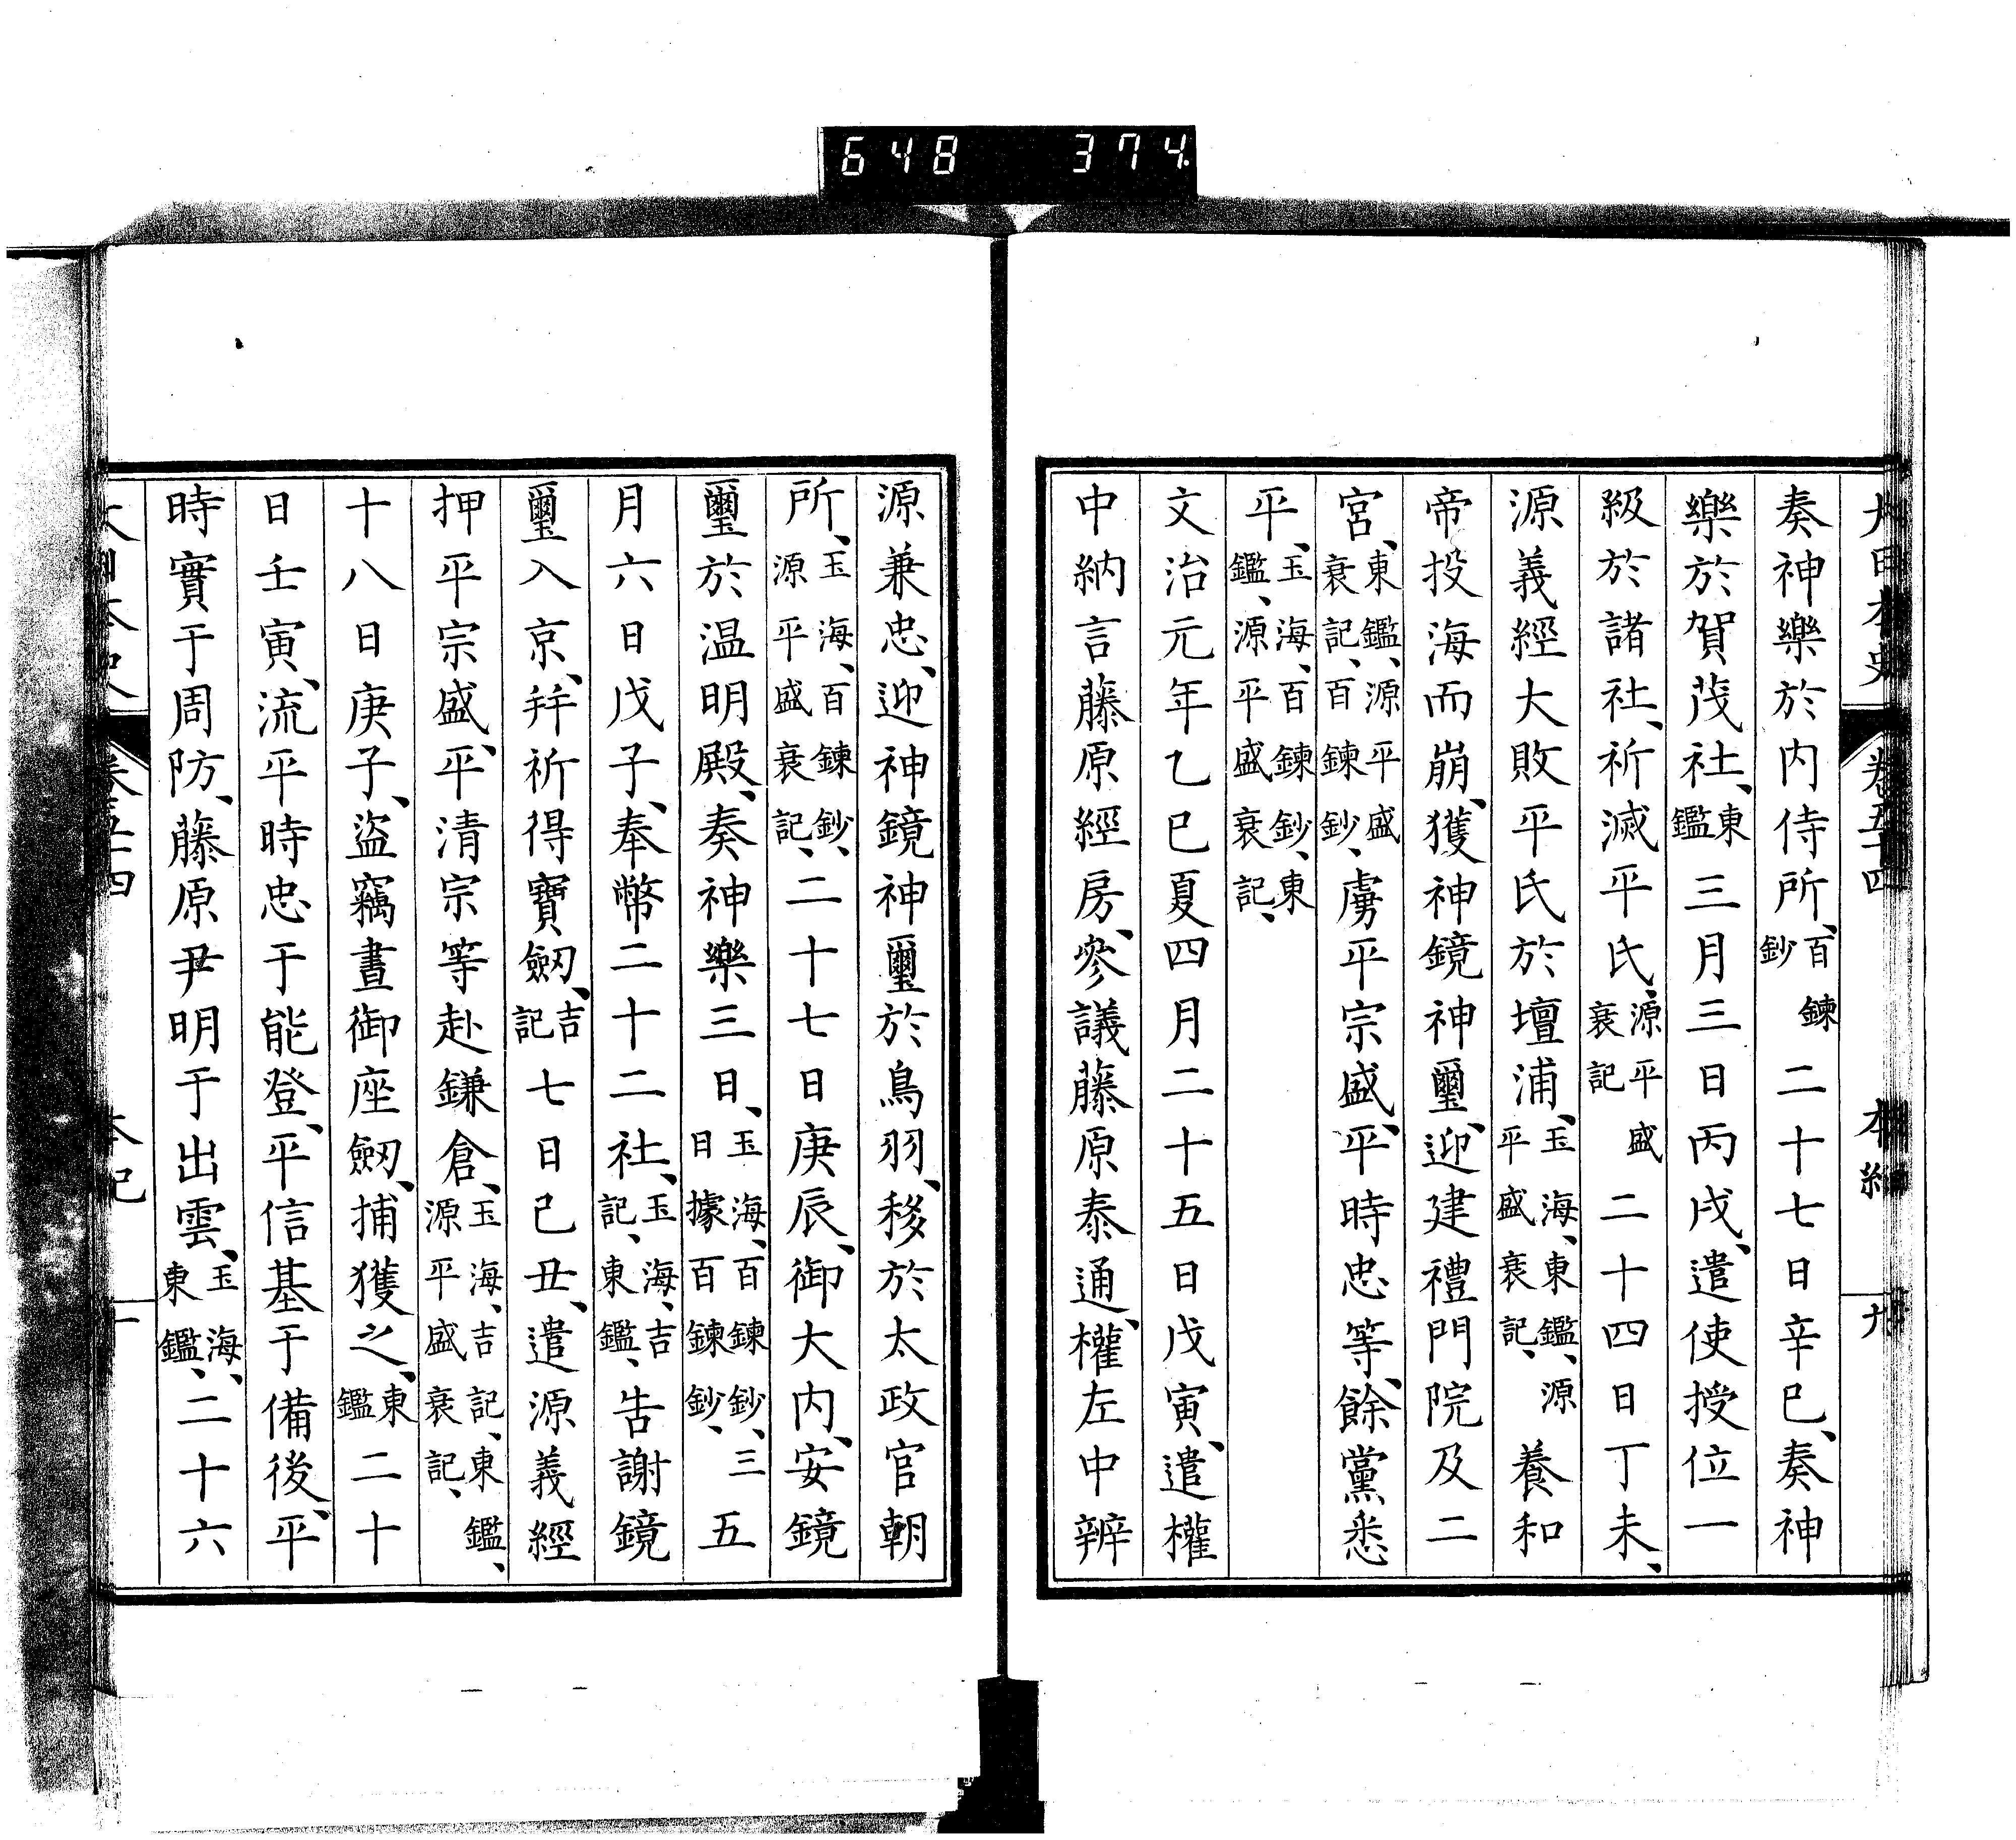 大日本史 卷五十四 本紀 九
奏神樂於内侍所、百鍊鈔二十七日辛巳、奏神
樂於賀茂社、東鑑三月三日丙戌、遣使授位一
級於諸社、祈滅平氏、源平盛衰記二十四日丁未、
源義經大敗平氏於壇浦、玉海、東鑑、源平盛衰記、養和
帝投海而崩、獲神鏡神璽、迎建禮門院及二
宮、東鑑、源平盛衰記、百鍊鈔、虜平宗盛、平時忠等、餘黨悉
平、玉海、百鍊鈔、東鑑、源平盛衰記、
文治元年乙巳夏四月二十五日戊寅、遣權
中納言藤原經房、參議藤原泰通、權左中辨
源兼忠、迎神鏡神璽於鳥羽、移於太政官朝
所、玉海、百鍊鈔、源平盛衰記、二十七日庚辰、御大内、安鏡
璽於温明殿、奏神樂三日、玉海、百鍊鈔、三日據百鍊鈔、五
月六日戊子、奉幣二十二社、玉海、吉記、東鑑、告謝鏡
璽入京、拜祈得寶劒、吉記七日己丑、遣源義經
押平宗盛、平清宗等赴鎌倉、玉海、吉記、東鑑、源平盛衰記、
十八日庚子、盜竊晝御座劒、捕獲之、東鑑二十
日壬寅、流平時忠于能登、平信基于備後、平
時實于周防、藤原尹明于出雲、玉海、東鑑、二十六
大日本史 卷五十四 本紀 十
648 374